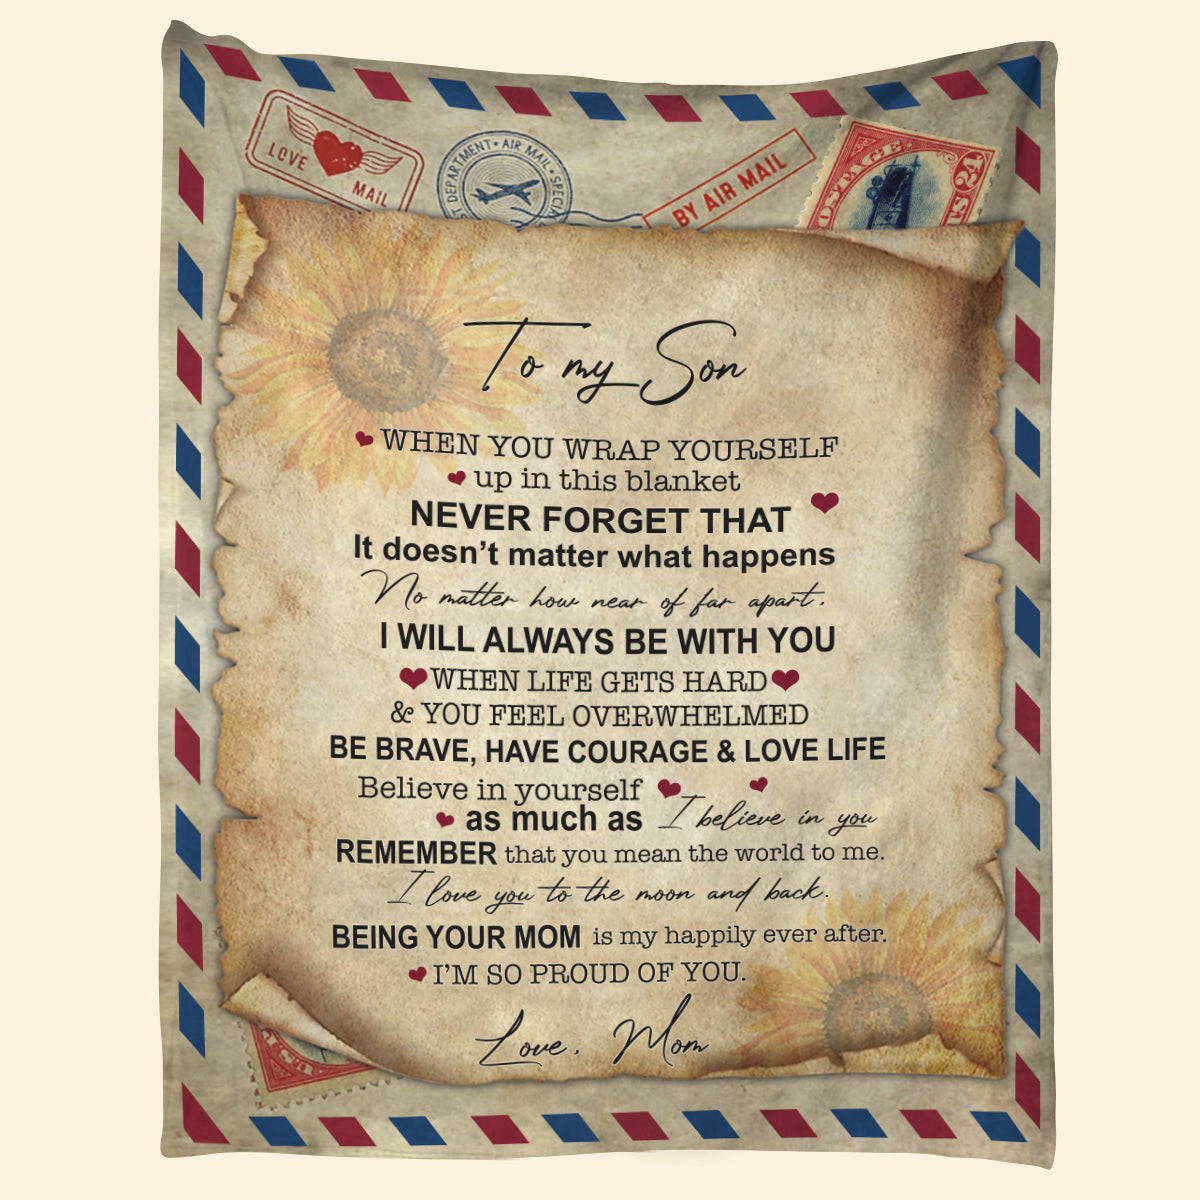 LOVE
MAIL
ST DEPARTMENT • AIR MAIL • SPECIA
BY AIR MAIL
POSTAGE
24
To my Son
WHEN YOU WRAP YOURSELF
up in this blanket
NEVER FORGET THAT
It doesn't matter what happens
No matter how near of far apart.
I WILL ALWAYS BE WITH YOU
WHEN LIFE GETS HARD
& YOU FEEL OVERWHELMED
BE BRAVE, HAVE COURAGE & LOVE LIFE
Believe in yourself
as much as I believe in you
REMEMBER that you mean the world to me.
I love you to the moon and back.
BEING YOUR MOM is my happily ever after.
I'M SO PROUD OF YOU.
Love, Mom